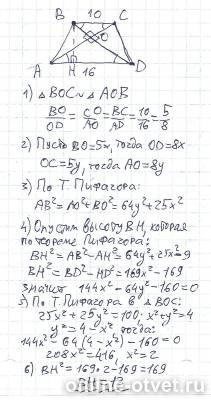 10
B C
O
A H 16 D
1) △BOC ~ △AOB
BO/OD = CO/AO = BC/AD = 10/16 = 5/8
2) Пусть BO=5x, тогда OD=8x
OC=5y, тогда AO=8y
3) По Т. Пифагора:
AB²=AO²+BO²=64y²+25x²
4) Опустим высоту BH, которая
по теореме Пифагора:
BH²=AB²-AH²=64y²+25x²-9
BH²=BD²-HD²=169x²-169
значит 144x²-64y²-160=0
5) По Т. Пифагора в △BOC:
25x²+25y²=100; x²+y²=4
y²=4-x², тогда:
144x²-64(4-x²)-160=0
208x²=416, x²=2
6) BH²=169·2-169=169
BH=13